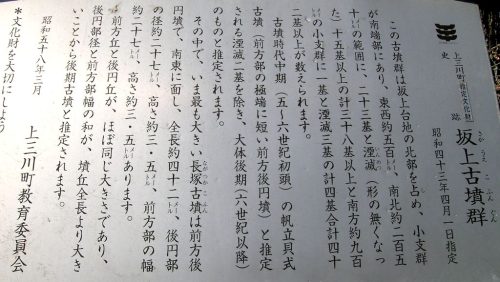 上三川町指定文化財
史跡
坂上古墳群
さかうえこふんぐん
昭和四十三年四月一日指定
この古墳群は坂上台地の北部を占め、小支群
が南端部にあり、東西約五百メートル、南北約二百五
十メートルの範囲に、二十三基と湮滅(形の無くなっ
た)十五基以上の計三十八基以上と南方約九百
メートルの小支群に一基と湮滅三基の計四基合計四十
二基以上が数えられます。
古墳時代中期(五〜六世紀初頭)の帆立貝式
古墳(前方部の極端に短い前方後円墳)と推定
される湮滅二基を除き、大体後期(六世紀以降)
のものと推定されます。
その中で、いま最も大きい長塚古墳は前方後
円墳で、南東に面し、全長約四十二メートル、後円部
の径約二十七メートル、高さ約三・五メートル、前方部の幅
約二十七メートル、高さ約三・五メートルあります。
前方丘と後円丘が、ほぼ同じ大きさであり、
後円部径と前方部幅の和が、墳丘全長より大き
いことから後期古墳と推定されます。
昭和五十八年三月
上三川町教育委員会
*文化財を大切にしよう